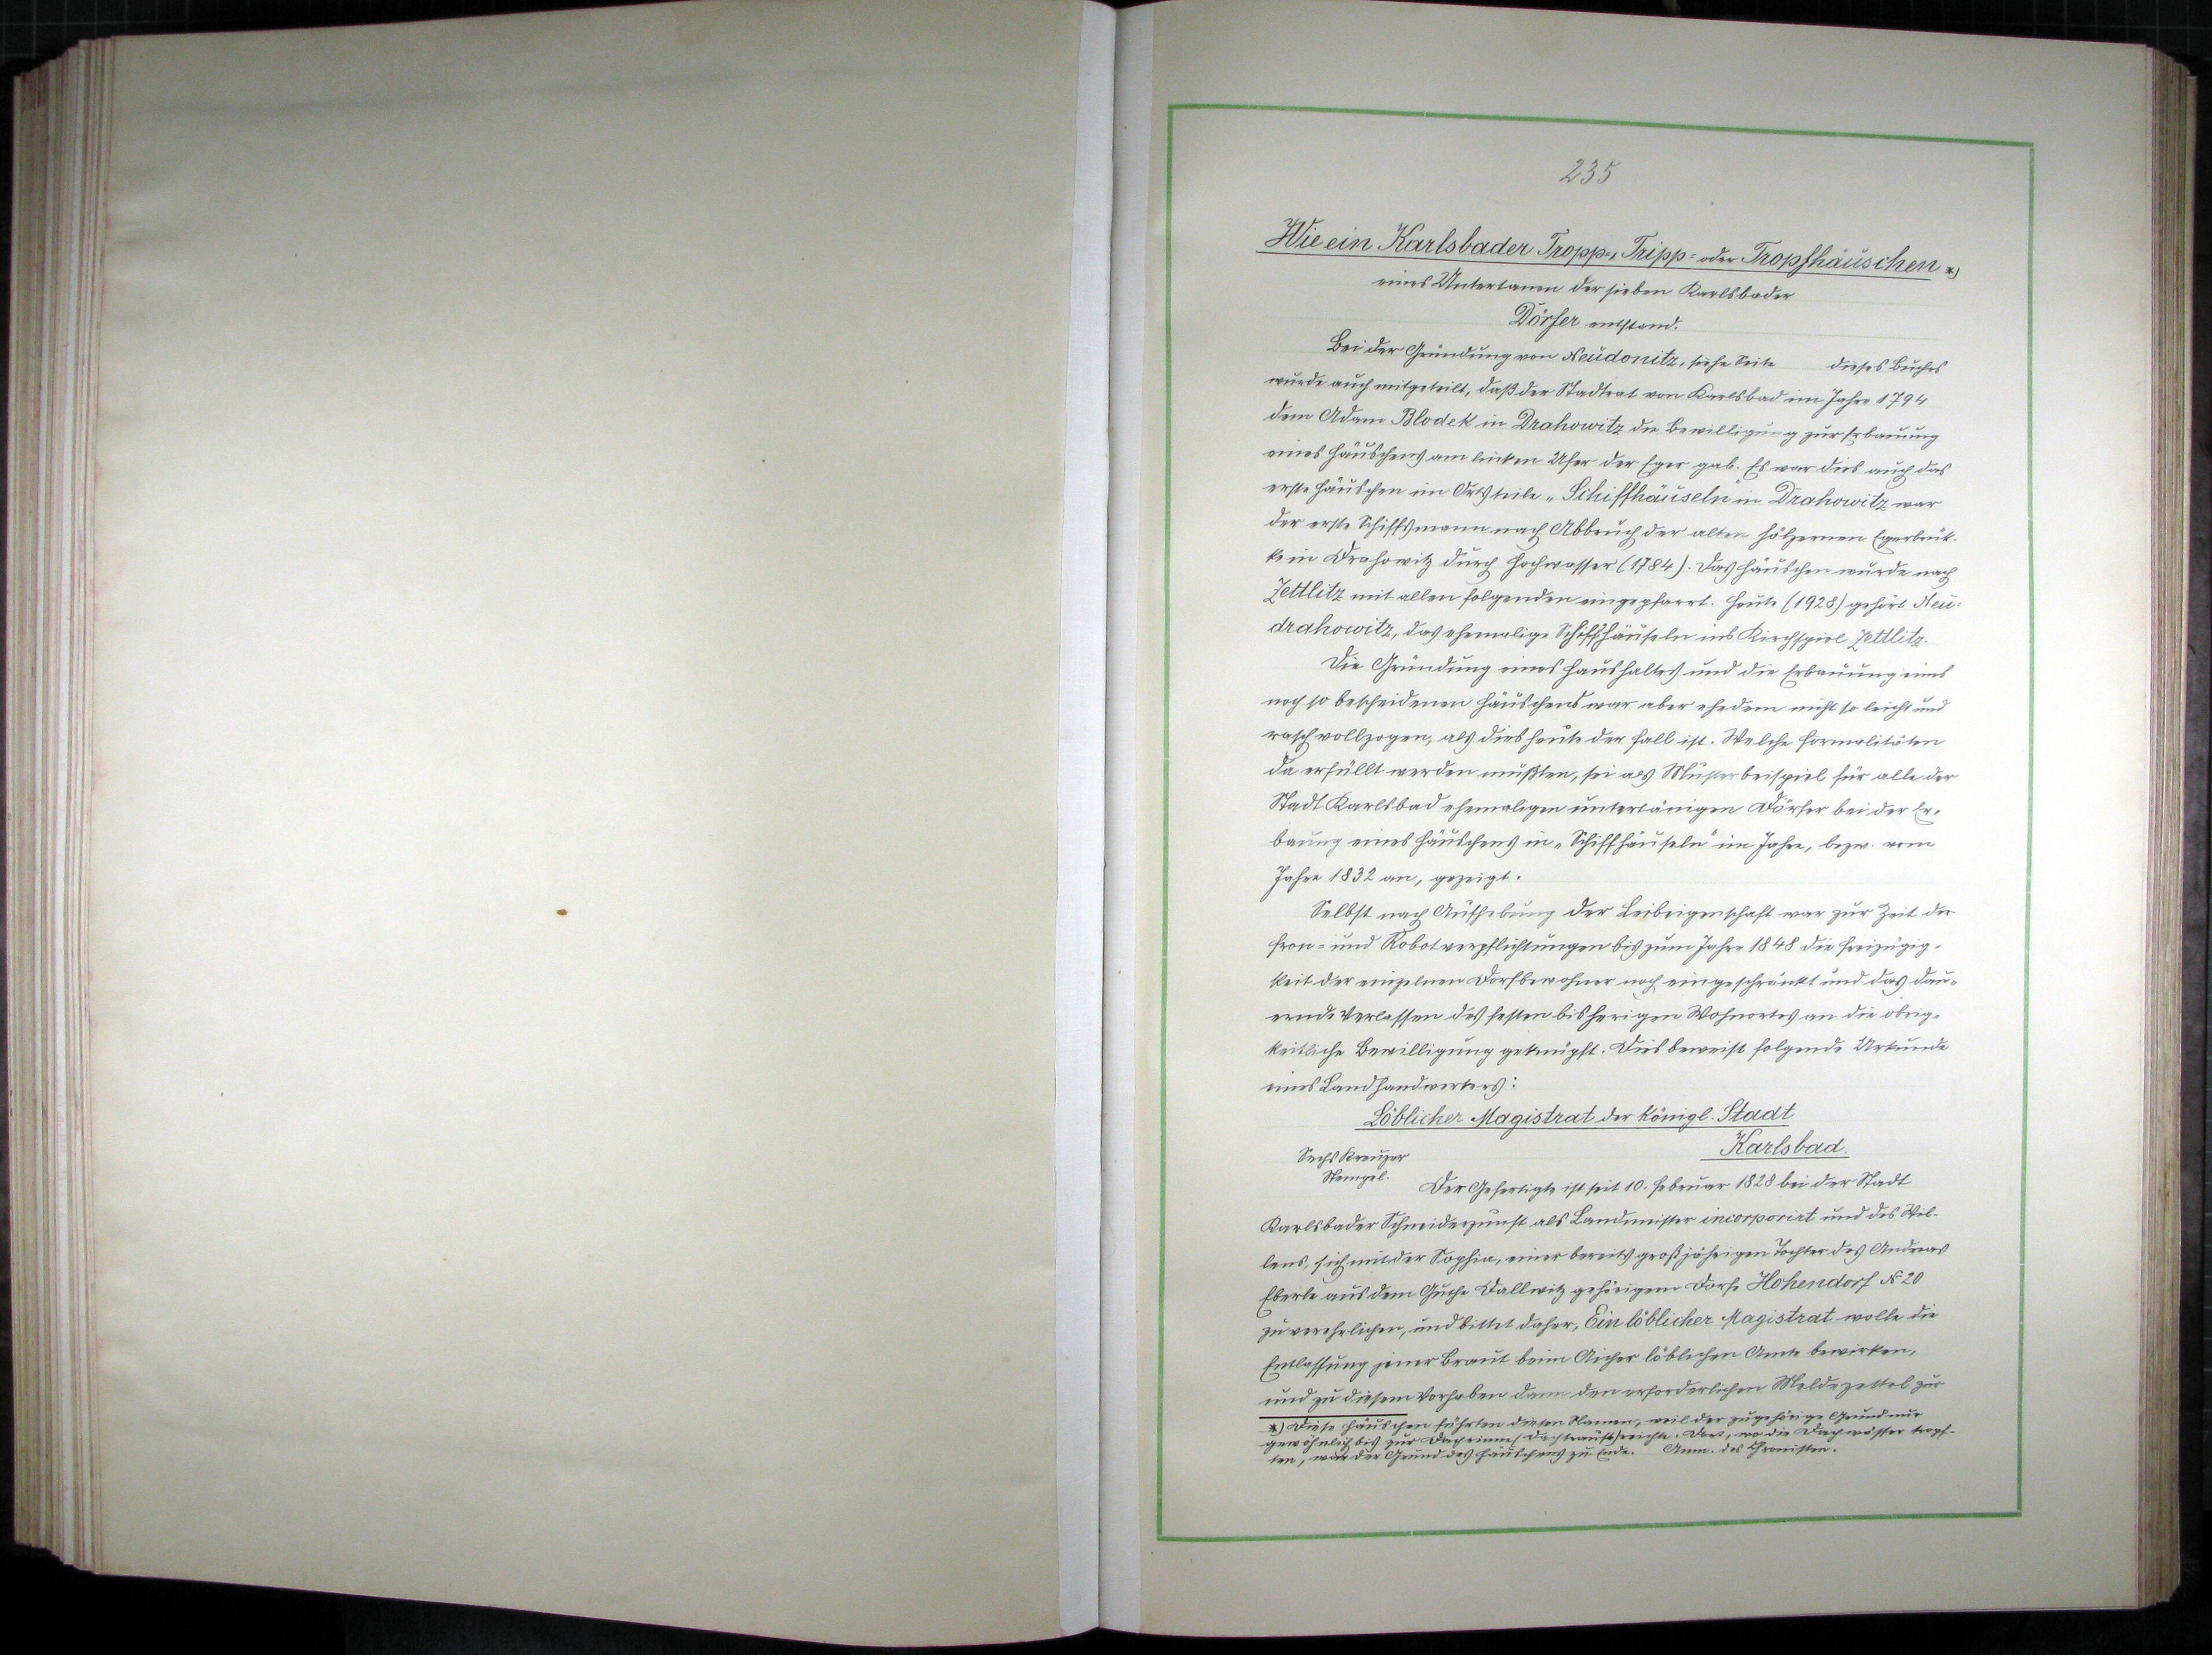 235
Wie ein Karlsbader Tropp-, Tripp- oder Tropfhäuschen *)
eines Untertanen der sieben Karlsbader
Dörfer entstand.
Bei der Gründung von Neudonitz, siehe Seite dieses Buches
wurde auch mitgeteilt, daß der Stadtrat von Karlsbad im Jahre 1794
dem Adam Blodek in Drahowitz die Bewilligung zur Erbauung
eines Häuschens am linken Ufer der Eger gab. Es war dies auch das
erste Häuschen im Ortsteile „Schiffhäuseln" in Drahowitz war
der erste Schiffsmann nach Abbruch der alten hölzernen Egerbrük-
ke in Drahowitz durch Hochwasser (1784). Das Häuschen wurde nach
Zettlitz mit allen folgenden eingepfarrt. Heute (1928) gehört Neu-
drahowitz, das ehemalige Schiffhäuseln ins Kirchspiel Zettlitz.
Die Gründung eines Haushaltes und die Erbauung eines
noch so bescheidenen Häuschens war aber ehedem nicht so leicht und
rasch vollzogen, als dies heute der Fall ist. Welche Formalitäten
da erfüllt werden mußten, sei als Musterbeispiel für alle der
Stadt Karlsbad ehemaligen untertänigen Dörfer bei der Er-
bauung eines Häuschens in „Schiffhäuseln" im Jahre, bezw. vom
Jahre 1832 an, gezeigt.
Selbst nach Aufhebung der Leibeigenschaft war zur Zeit der
Fron- und Robotverpflichtungen bis zum Jahre 1848 die Freizügig-
keit der einzelnen Dorfbewohner noch eingeschränkt und das dau-
ernde Verlassen des festen bisherigen Wohnortes an die obrig-
keitliche Bewilligung geknüpft. Dies beweist folgende Urkunde
eines Landhandwerkers:
Löblicher Magistrat der Königl. Stadt
Karlsbad.
Sechs Kreuzer
Stempel.
Der Gefertigte ist seit 10. Februar 1828 bei der Stadt
Karlsbader Schneiderzunft als Landmeister incorporirt und des Wil-
lens, sich mit der Sophia, einer bereits großjährigen Tochter des Andreas
Eberle aus dem Guthe Dallwitz gehörigem Dorfe Hohendorf N° 20
zu verehelichen, und bittet daher, Ein löblicher Magistrat wolle die
Entlassung jener Braut beim Aicher löblichen Amte bewirken,
und zu diesem Vorhaben dann den erforderlichen Meldezettel zur
*) Diese Häuschen führten diesen Namen, weil der zugehörige Grund nur
gewöhnlich bis zur Dachrinne (Dachtraufe) reichte. Dort, wo die Dachwässer tropf-
ten, war der Grund des Häuschens zu Ende. Anm. des Chronisten.